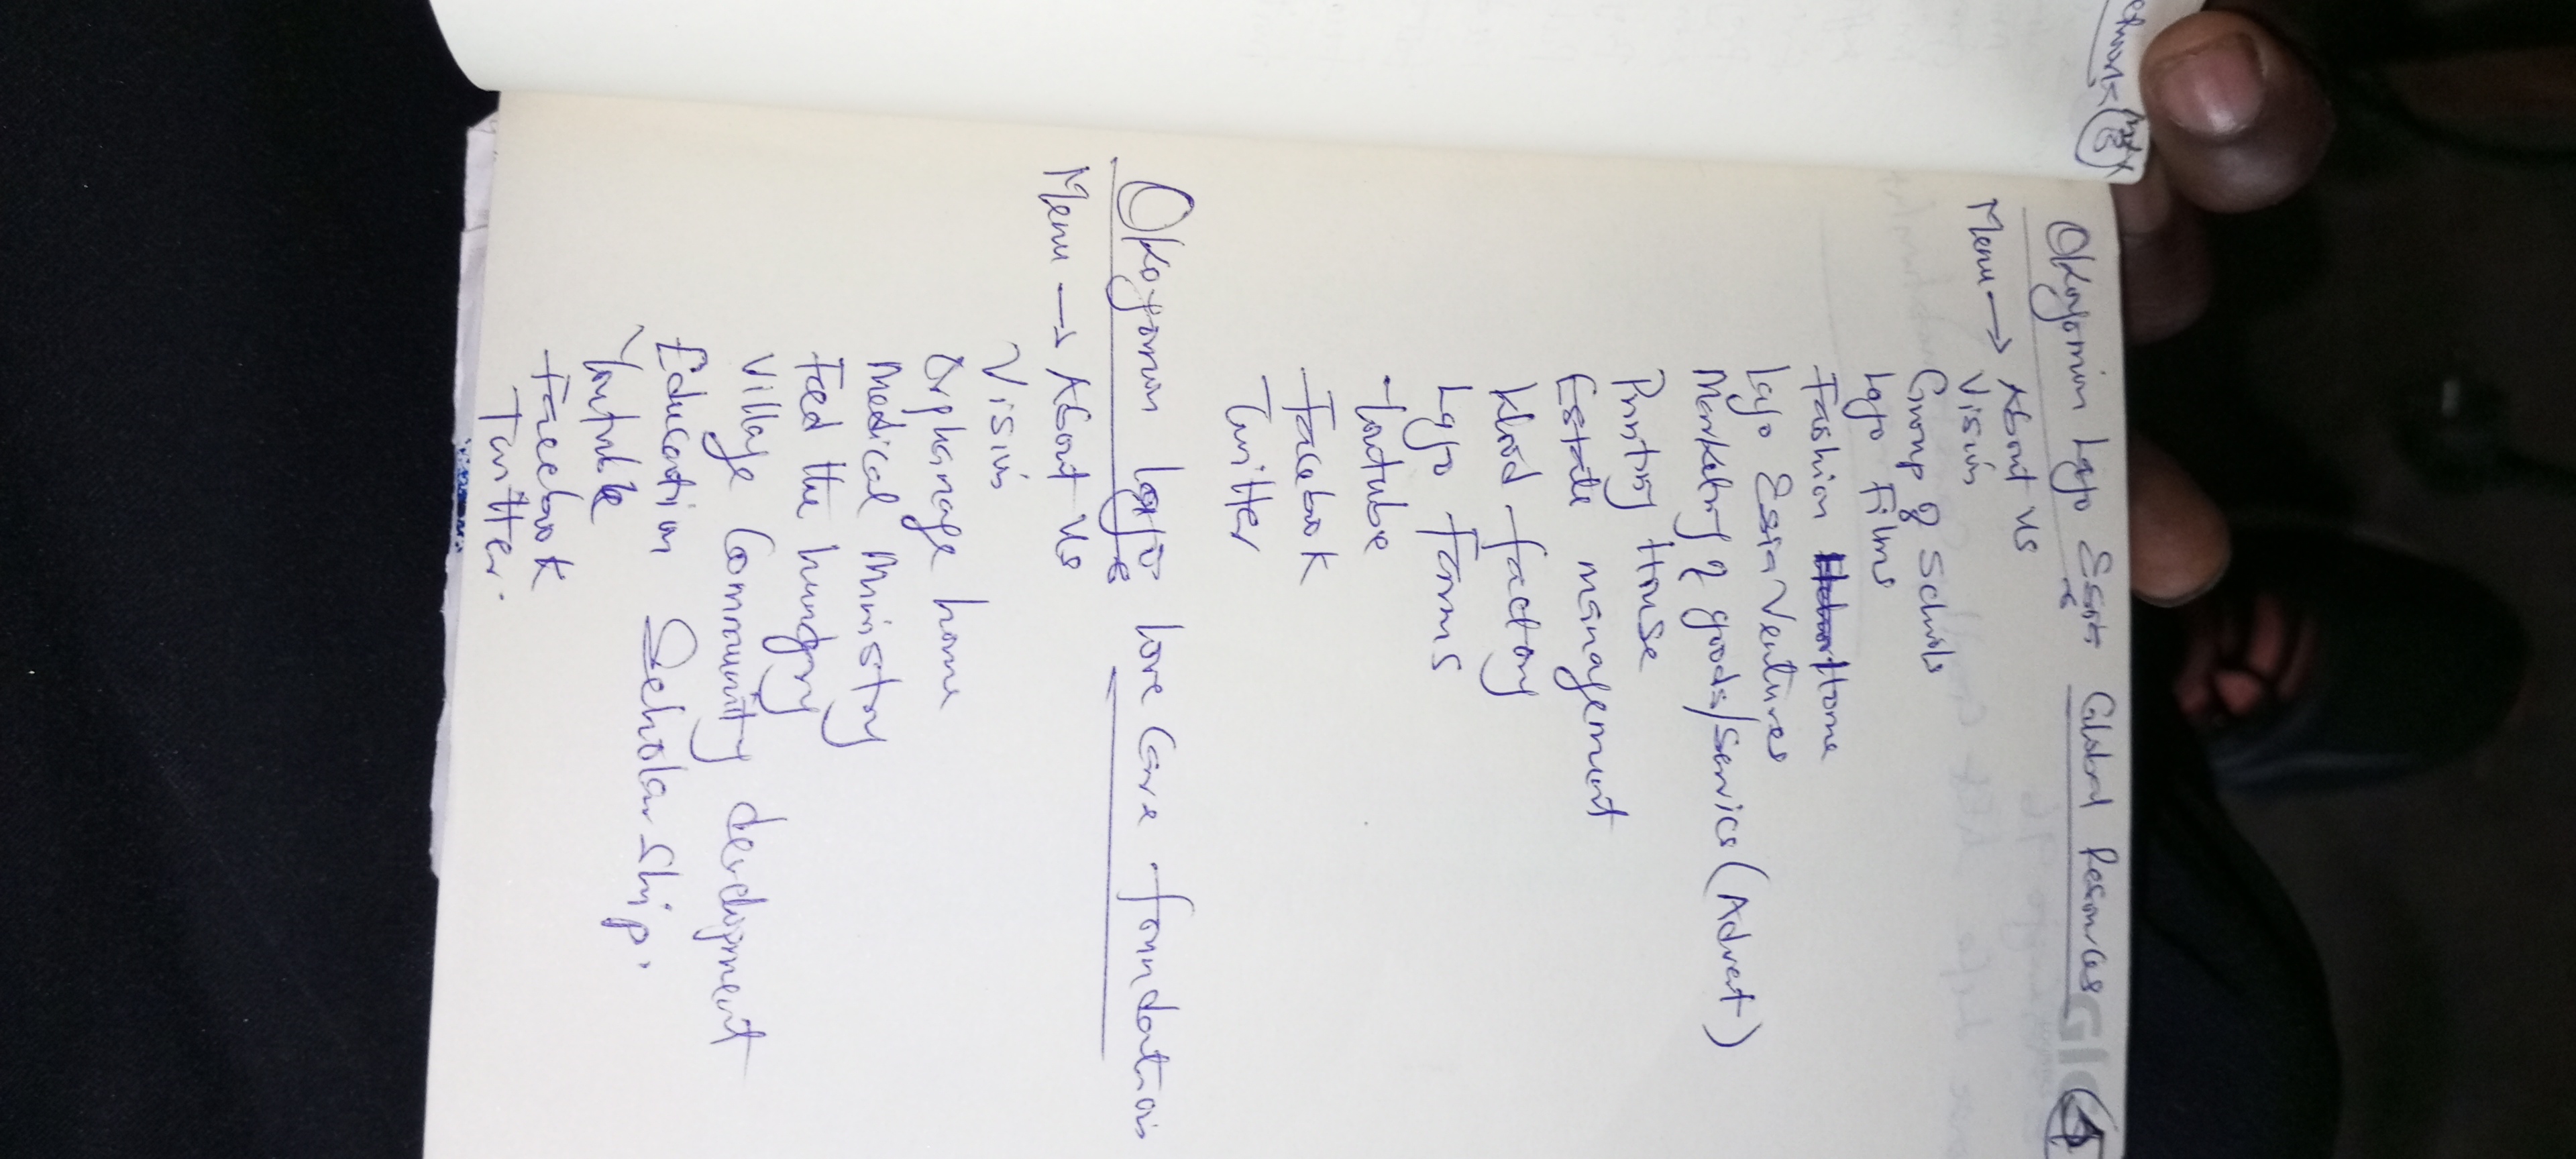 Okoyomon Lajo Esia Global Resources 4
Menu → About Us
Vision
Group of Schools
Lajo Films
Fashion Home
Lajo Esia Ventures
Marketing of goods/service (Advert)
Printing House
Estate management
factory
Lajo Farms
Youtube
Facebook
Twitter
Okoyomon Lajo love Care foundation
Menu → About Us
Vision
Orphanage home
Medical Ministry
Feed the hungry
Village Community development
Education Scholarship.
Youtube
Facebook
Twitter.